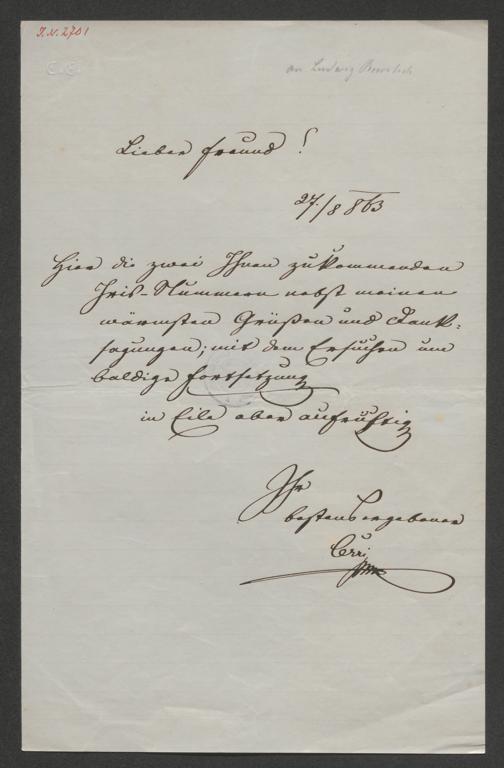 I.N. 2701
C. C.
an Ludwig
Lieber Freund!
27./8 863
Hier die zwei Ihnen zukommenden
Iris-Nummern nebst meinen
wärmsten Grüßen und Dank-
sagungen; mit dem Ersuchen um
baldige Fortsetzung
in Eile aber aufrichtig
Ihr
bestens ergebener
Cerri